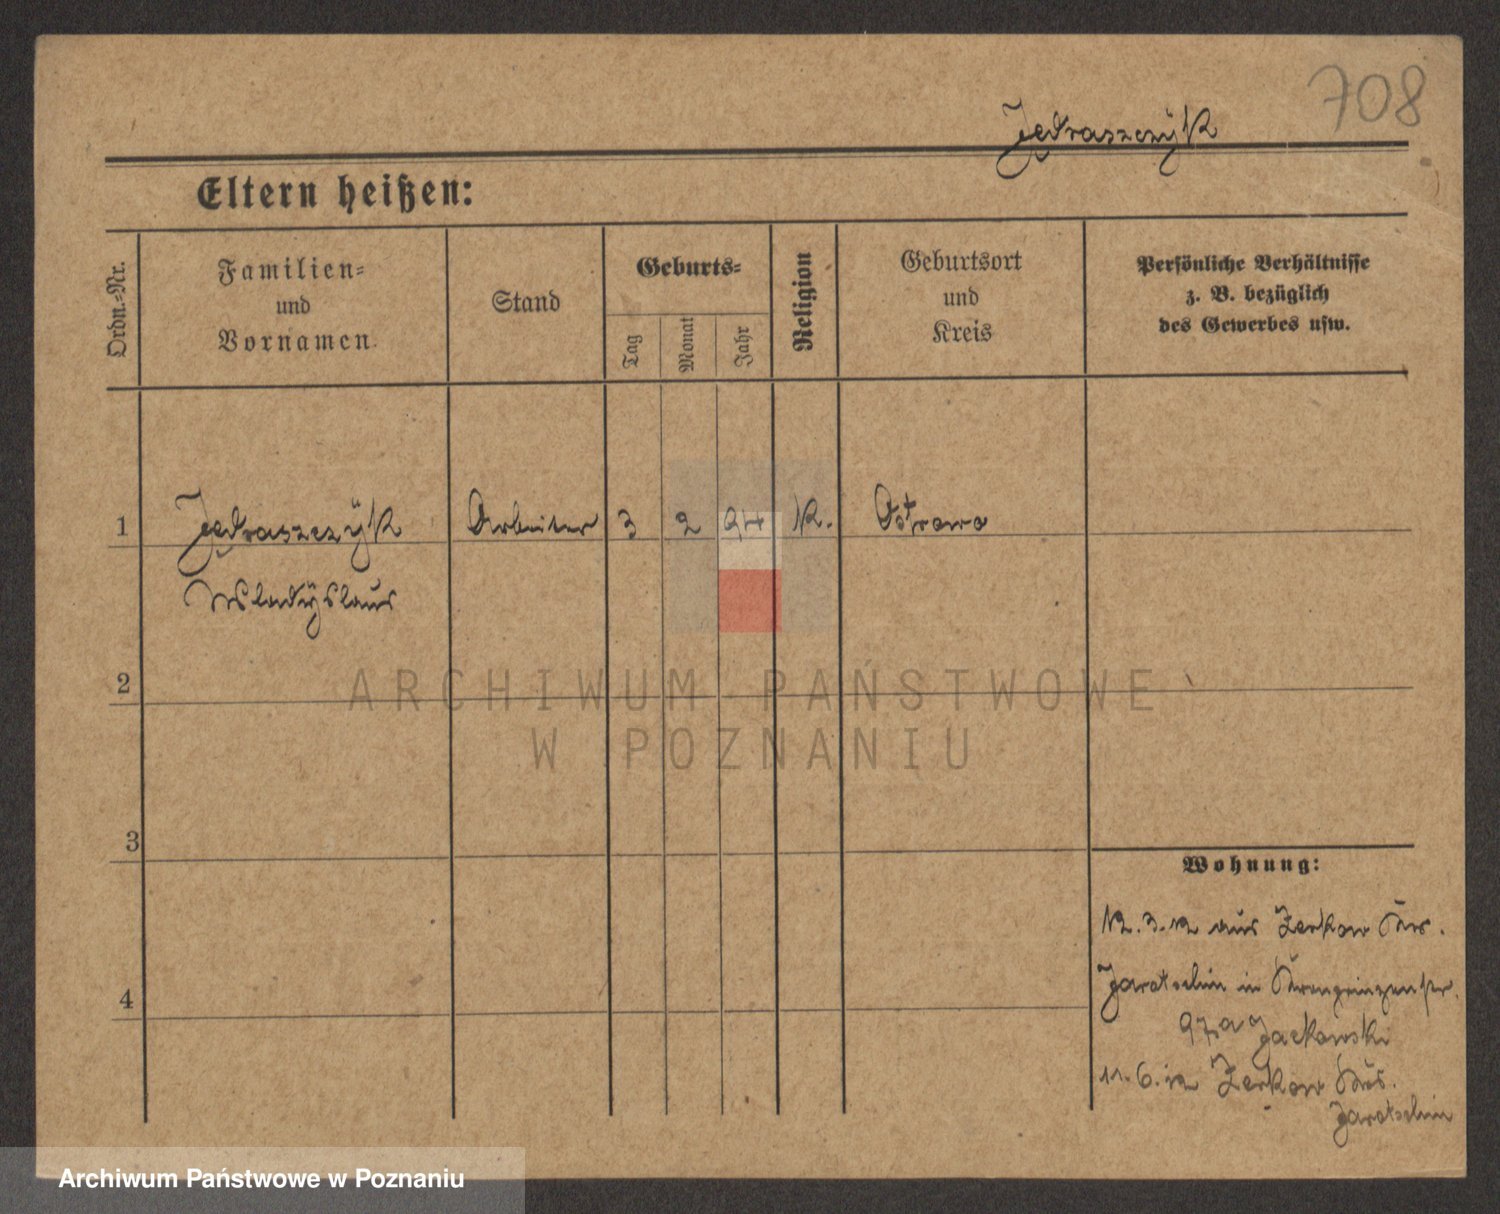 708
Jędraszczÿk
Eltern heißen:
Ordn.-Nr.
Familien-
und
Vornamen.
Stand
Geburts-
Tag
Monat
Jahr
Religion
Geburtsort
und
Kreis
Persönliche Verhältnisse
z. B. bezüglich
des Gewerbes usw.
1 Jędraszczÿk Arbeiter 3 2 94 K. Ostrowo
Wladÿslaus
2
ARCHIWUM PAŃSTWOWE
W POZNANIU
3
Wohnung:
12.3.12 aus Zerkow Krs.
4
Jarotschin in Kronprinzenstr.
97a Jackowski
11.6.12 Zerkow Krs.
Jarotschin
Archiwum Państwowe w Poznaniu